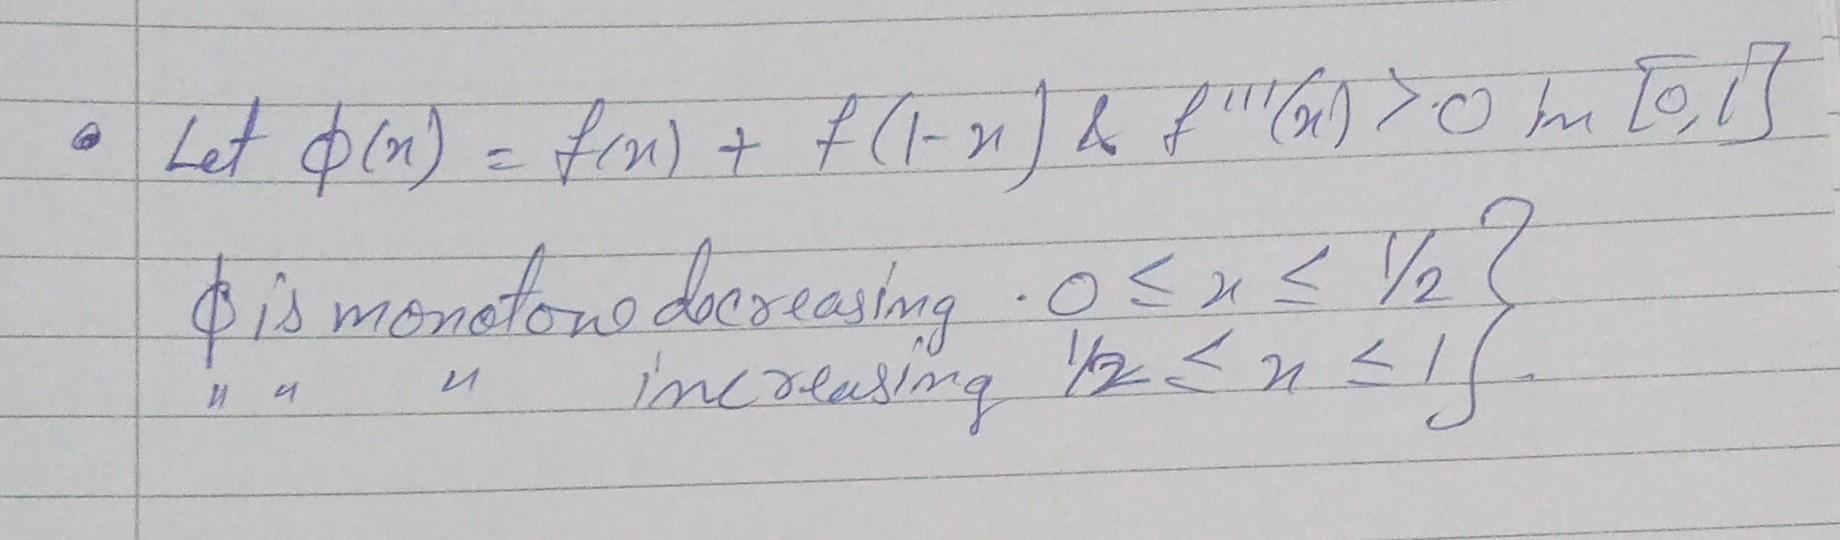 • Let ϕ(x) = f(x) + f(1-x) & f'''(x) > 0 In [0,1]
ϕ is monotone decreasing . 0 ≤ x ≤ 1/2 }
" " " increasing 1/2 ≤ x ≤ 1 } .